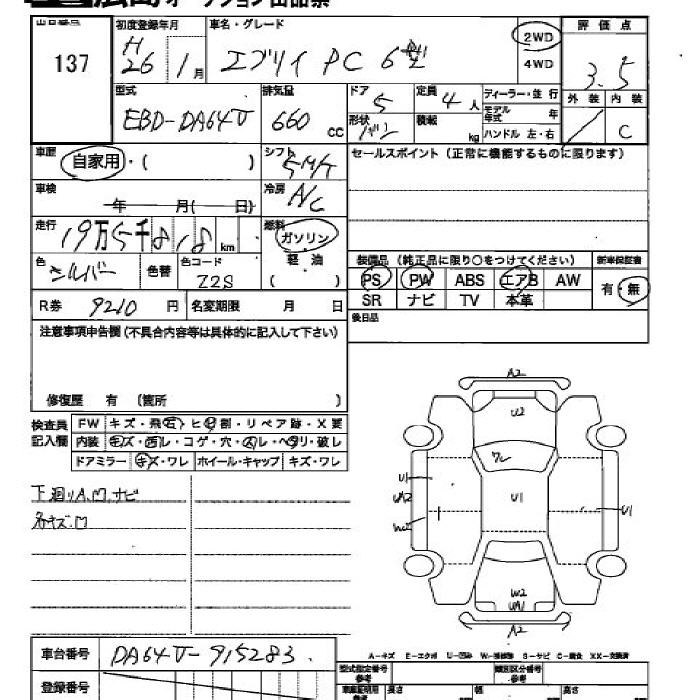 広島オークション出品票
出品番号 137
初度登録年月 H26 1月
車名・グレード エブリイ PC 6型
2WD
4WD
評価点 3.5
外装 内装 C
型式 EBD-DA64V
排気量 660 cc
ドア 5
定員 4人
形状 バン
積載 kg
ディーラー・並行
モデル年式 年
ハンドル 左・右
車歴 自家用・( )
シフト 5M/T
セールスポイント (正常に機能するものに限ります)
車検 年 月( 日)
冷房 A/C
走行 19万5千818km
燃料 ガソリン
軽油
( )
色 シルバー 色替
色コード Z2S
装備品 (純正品に限り○をつけてください)
新車保証書
PS PW ABS エアB AW
有・無
SR ナビ TV 本革
R券 9210円
名変期限 月 日
後日品
注意事項申告欄(不具合内容等は具体的に記入して下さい)
修復歴 有 (箇所 )
検査員記入欄
FW キズ・飛石・ヒビ割・リペア跡・X要
内装 キズ・汚レ・コゲ・穴・スレ・ヘタリ・破レ
ドアミラー キズ・ワレ ホイール・キャップ キズ・ワレ
下廻りA.M.ナビ
各キズ.M
A2
U2
U1
U1
UA2
U1
W2
UA1
A2
A-キズ E-エクボ U-凹み W-補修跡 S-サビ C-腐食 XX-交換済
車台番号 DA64V-915283
型式指定番号 参考
類別区分番号 参考
登録番号
車庫証明用 参考 長さ 幅 高さ